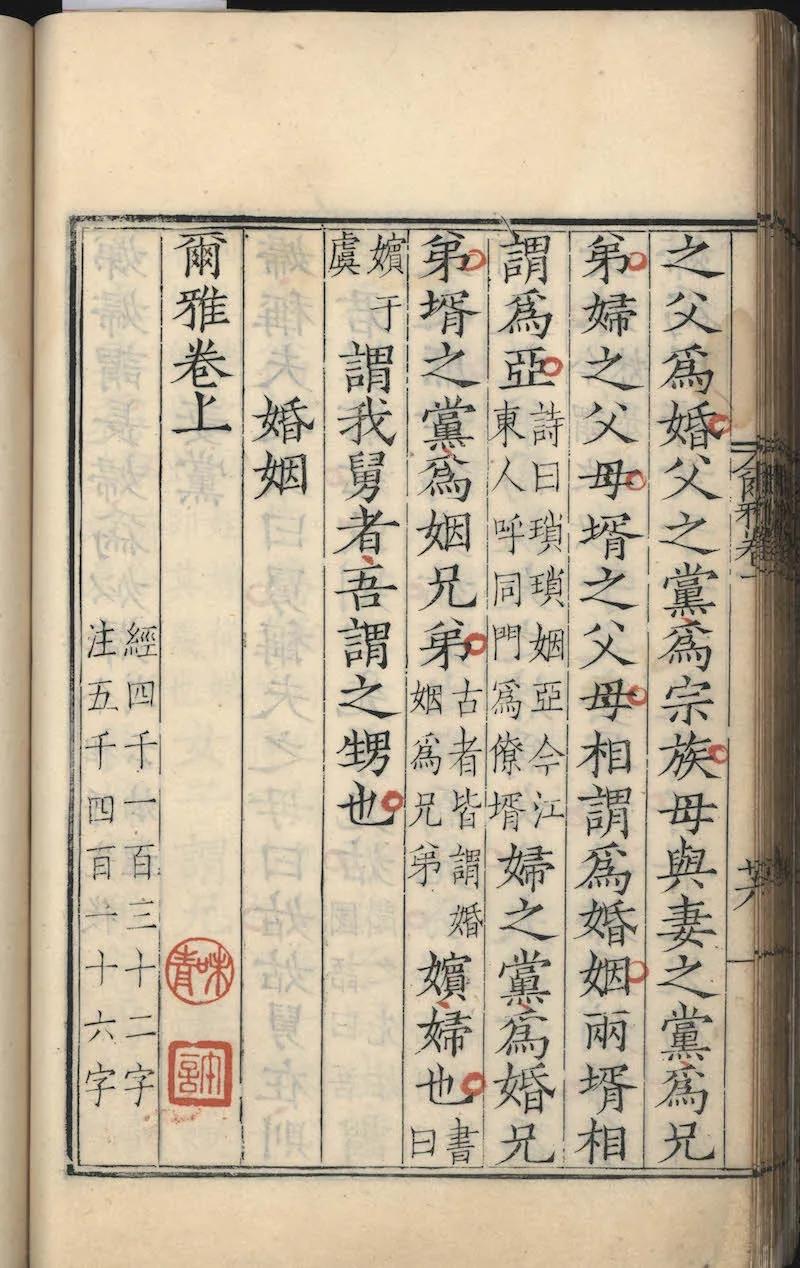 之父爲婚父之黨爲宗族母與妻之黨爲兄
弟婦之父母壻之父母相謂爲婚姻兩壻相
謂爲亞詩曰瑣瑣姻亞今江東人呼同門爲僚壻婦之黨爲婚兄
弟壻之黨爲姻兄弟古者皆謂婚姻爲兄弟嬪婦也書曰
嬪于虞謂我舅者吾謂之甥也
婚姻
爾雅卷上
經四千一百三十二字
注五千四百一十六字
味青
爾雅卷